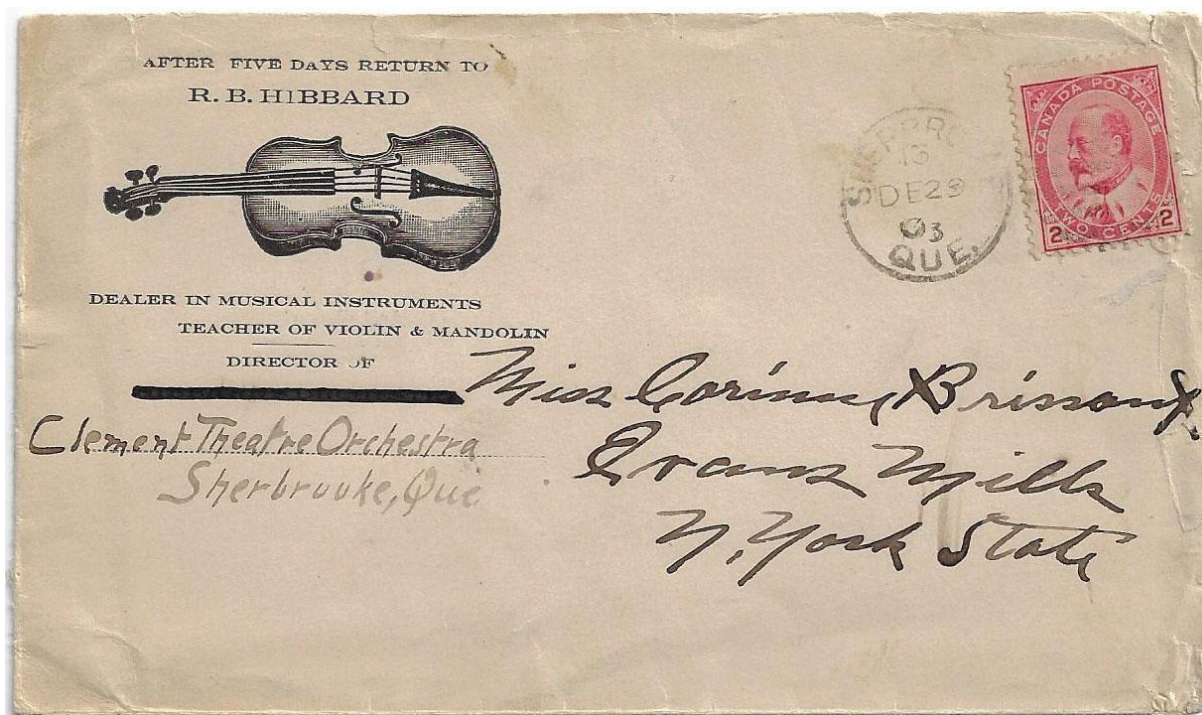 AFTER FIVE DAYS RETURN TO
R. B. HIBBARD
DEALER IN MUSICAL INSTRUMENTS
TEACHER OF VIOLIN & MANDOLIN
DIRECTOR OF
Clement Theatre Orchestra
Sherbrooke, Que
DE 29
03
QUE.
CANADA POSTAGE
2 TWO CENTS 2
Miss
Evans Mills
N. York State